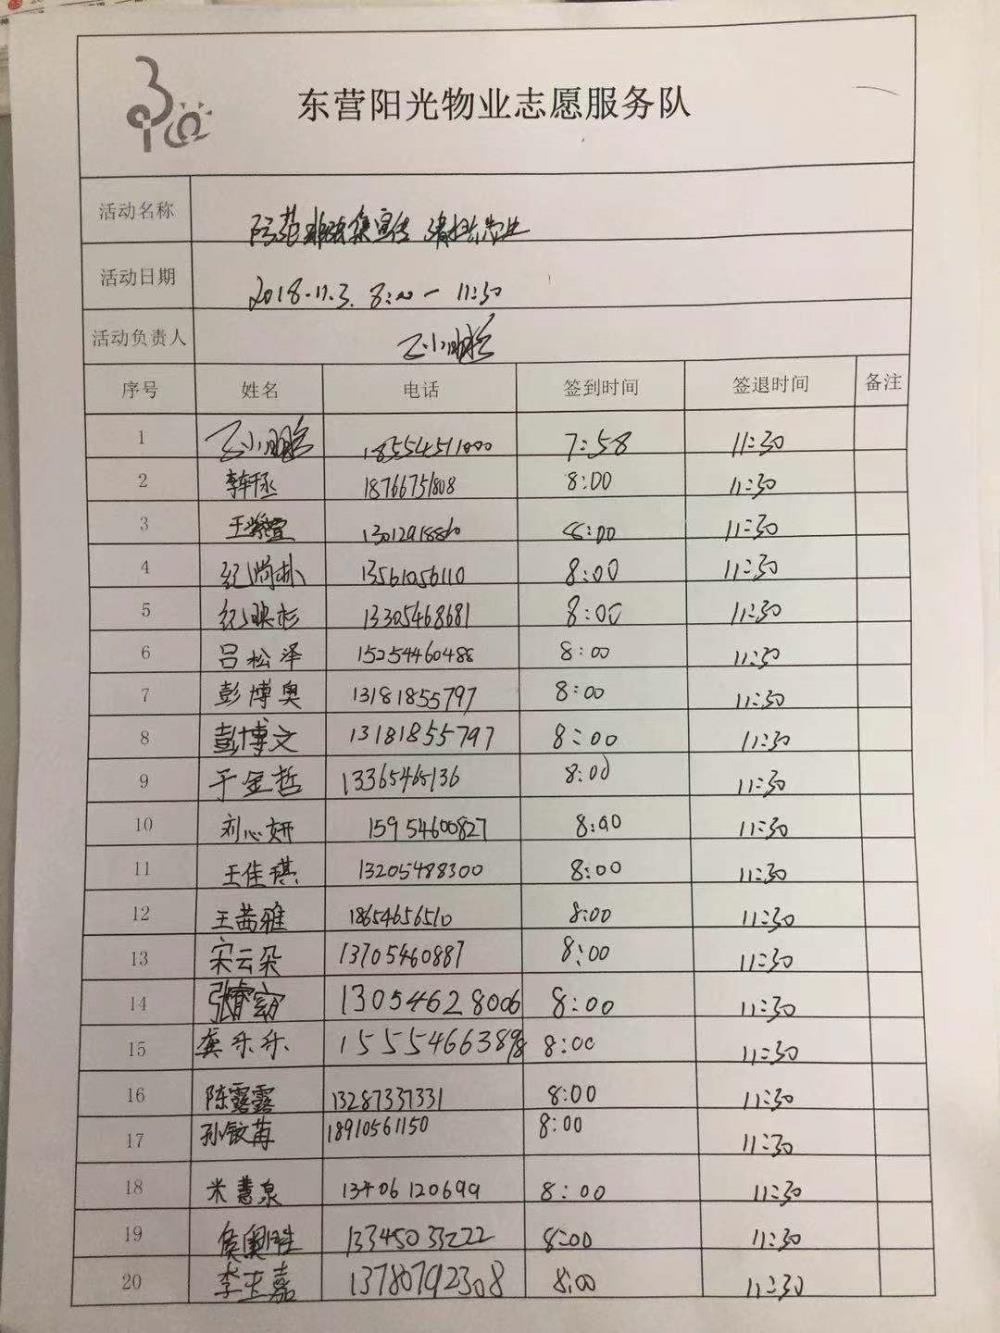 东营阳光物业志愿服务队
活动名称 防范非法集宣传 清扫卫生
活动日期 2018.11.3. 8:00一11:30
活动负责人 王小鹏
序号 姓名 电话 签到时间 签退时间 备注
1 王小鹏 18554511000 7:58 11:30
2 18766751808 8:00 11:30
3 王紫萱 13012918860 8:00 11:30
4 纪尚朴 13561056110 8:00 11:30
5 纪映杉 13305468681 8:00 11:30
6 吕松泽 15254460488 8:00 11:30
7 彭博奥 13181855797 8:00 11:30
8 彭博文 13181855797 8:00 11:30
9 于金哲 13365465136 8:00 11:30
10 刘心妍 15954600827 8:00 11:30
11 王佳琪 13205488300 8:00 11:30
12 王茜雅 18654656510 8:00 11:30
13 宋云朵 13705460887 8:00 11:30
14 13054628006 8:00 11:30
15 龚乐乐 8:00 11:30
16 陈露露 13287337331 8:00 11:30
17 孙敏苒 18910561150 8:00 11:30
18 米慧泉 13406120699 8:00 11:30
19 13345033222 8:00 11:30
20 李玉嘉 13780792308 8:00 11:30